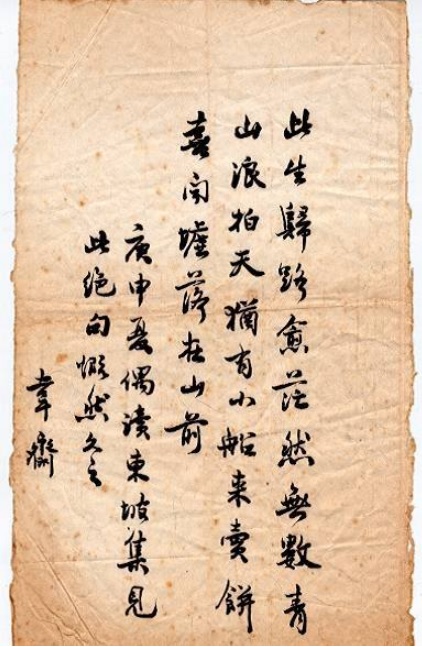 此生歸路愈茫然無數青
山浪拍天猶有小船来賣餅
喜聞墟落在山前
庚申夏偶讀東坡集見
此絕句慨然久之
韋齋